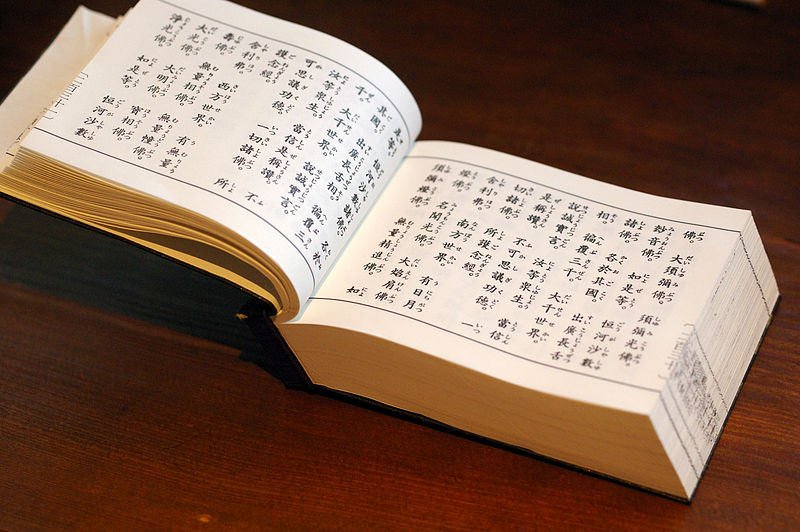 佛。大須彌佛。須彌光佛。
妙音佛。如是等。恒河沙數
諸佛。各於其國。出廣長舌
相。徧覆三千。大千世界。
說誠實言。汝等衆生。當信
是稱讚。不可思議功德。一
切諸佛。所護念經。
舍利弗。南方世界。有日月
燈佛。名聞光佛。大焰肩佛。
須彌燈佛。無量精進佛。如
是等。恒河沙數諸佛。各於
其國。出廣長舌相。徧覆三
千。大千世界。說誠實言。
汝等衆生。當信是稱讚。不
可思議功德。一切諸佛。所
護念經。
舍利弗。西方世界。有無量
壽佛。無量相佛。無量幢佛。
大光佛。大明佛。寶相佛。
淨光佛。如是等。恒河沙數
二百三十